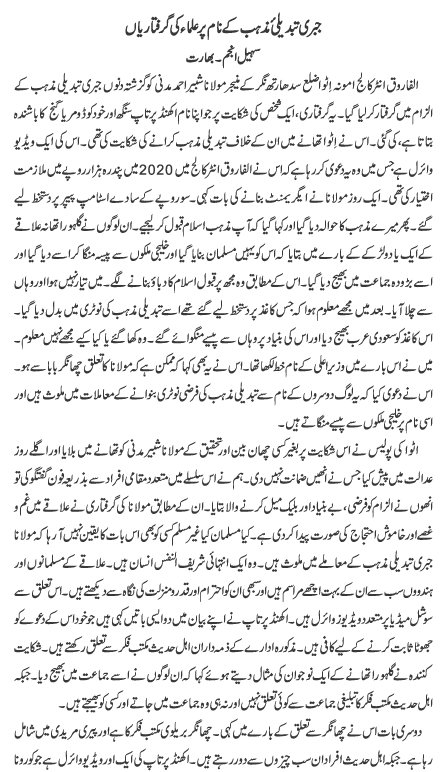 جبری تبدیلیٔ مذہب کے نام پر علماء کی گرفتاریاں
سہیل انجم۔ بھارت
الفاروق انٹر کالج امونہ اٹوا ضلع سدھارتھ نگر کے منیجر مولانا شبیر احمد مدنی کو گزشتہ دنوں جبری تبدیلی مذہب کے
الزام میں گرفتار کر لیا گیا۔ یہ گرفتاری، ایک شخص کی شکایت پر جو اپنا نام اکھنڈ پرتاپ سنگھ اور خود کو ڈومریا گنج کا باشندہ
بتاتا ہے، کی گئی۔ اس نے اٹوا تھانے میں ان کے خلاف تبدیلی مذہب کرانے کی شکایت کی تھی۔ اس کی ایک ویڈیو
وائرل ہے جس میں وہ یہ دعویٰ کر رہا ہے کہ اس نے الفاروق انٹر کالج میں 2020 میں پندرہ ہزار روپے میں ملازمت
اختیار کی تھی۔ ایک روز مولانا نے ایگریمنٹ بنانے کی بات کہی۔ سو روپے کے سادے اسٹامپ پیپر پر دستخط لیے
گئے۔ پھر میرے مذہب کا حوالہ دیا گیا اور کہا گیا کہ آپ مذہب اسلام قبول کر لیجیے۔ ان لوگوں نے گلہورا تھانہ علاقے
کے ایک یا دو لڑکے کے بارے میں بتایا کہ اس کو یہیں مسلمان بنایا گیا اور خلیجی ملکوں سے پیسہ منگا کر اسے دیا گیا اور
اسے بڑودہ جماعت میں بھیج دیا گیا۔ اس کے مطابق وہ مجھ پر قبول اسلام کا دباؤ بنانے لگے۔ میں تیار نہیں ہوا اور وہاں
سے چلا آیا۔ بعد میں مجھے معلوم ہوا کہ جس کاغذ پر دستخط لیے گئے تھے اسے تبدیلی مذہب کی نوٹری میں بدل دیا گیا۔
اس کاغذ کو سعودی عرب بھیج دیا اور اس کی بنیاد پر وہاں سے پیسے منگوائے گئے۔ وہ کھا گئے یا کیا کیے مجھے نہیں معلوم۔
میں نے اس بارے میں وزیر اعلیٰ کے نام خط لکھا تھا۔ اس نے یہ بھی کہا کہ ممکن ہے کہ مولانا کا تعلق چھانگر بابا سے ہو۔
اس نے دعویٰ کیا کہ یہ لوگ دوسروں کے نام سے تبدیلی مذہب کی فرضی نوٹری بنوانے کے معاملات میں ملوث ہیں اور
اسی نام پر خلیجی ملکوں سے پیسے منگاتے ہیں۔
اٹوا کی پولیس نے اس شکایت پر بغیر کسی چھان بین اور تحقیق کے مولانا شبیر مدنی کو تھانے میں بلایا اور اگلے روز
عدالت میں پیش کیا جس نے انھیں ضمانت نہیں دی۔ ہم نے اس سلسلے میں متعدد مقامی افراد سے بذریعہ فون گفتگو کی تو
انھوں نے الزام کو فرضی، بے بنیاد اور بلیک میل کرنے والا بتایا۔ ان کے مطابق مولانا کی گرفتاری نے علاقے میں غم و
غصے اور خاموش احتجاج کی صورت پیدا کر دی ہے۔ کیا مسلمان کیا غیر مسلم کسی کو بھی اس بات کا یقین نہیں آ رہا کہ مولانا
جبری تبدیلی مذہب کے معاملے میں ملوث ہیں۔ وہ ایک انتہائی شریف النفس انسان ہیں۔ علاقے کے مسلمانوں اور
ہندووں سب سے ان کے بہت اچھے مراسم ہیں اور سبھی ان کو احترام اور قدر و منزلت کی نگاہ سے دیکھتے ہیں۔ اس تعلق سے
سوشل میڈیا پر متعدد ویڈیوز وائرل ہیں۔ اکھنڈ پرتاپ نے اپنے بیان میں دو ایسی باتیں کہی ہیں جو خود اس کے دعوے کو
جھوٹا ثابت کرنے کے لیے کافی ہیں۔ مذکورہ ادارے کے ذمہ داران اہل حدیث مکتب فکر سے تعلق رکھتے ہیں۔ شکایت
کنندہ نے گلہورا تھانے کے ایک نوجوان کی مثال دیتے ہوئے کہا کہ ان لوگوں نے اسے جماعت میں بھیج دیا۔ جبکہ
اہل حدیث مکتب فکر کا تبلیغی جماعت سے کوئی تعلق نہیں اور نہ ہی وہ جماعت میں جاتے اور کسی کو بھیجتے ہیں۔
دوسری بات اس نے چھانگر سے تعلق کے بارے میں کہی۔ چھانگر بریلوی مکتب فکر کا ہے اور پیری مریدی میں شامل
رہا ہے۔ جبکہ اہل حدیث افراد ان سب چیزوں سے دور رہتے ہیں۔ اکھنڈ پرتاپ کی ایک اور ویڈیو وائرل ہے جو کورونا